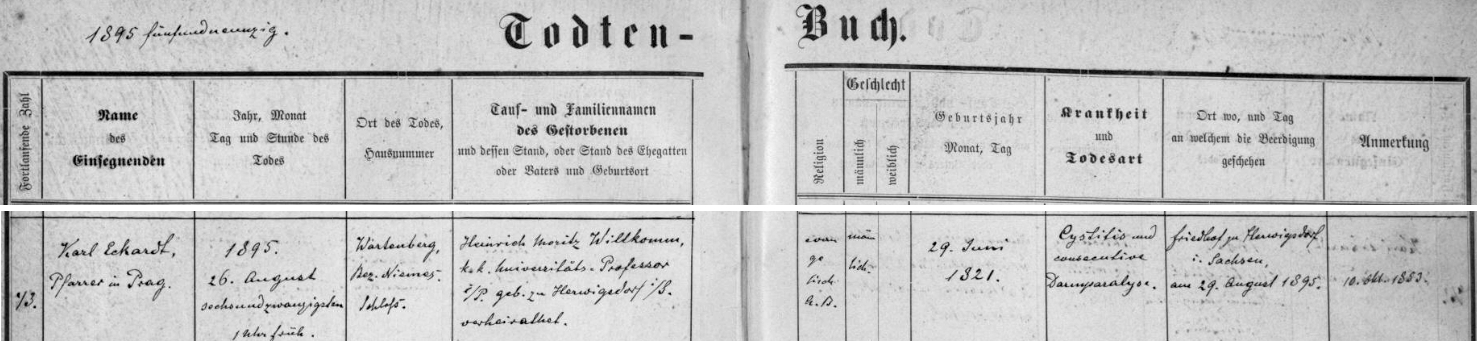 1895 fünfundneunzig.
Todten-Buch.
Fortlaufende Zahl
Name
des
Einsegnenden
Jahr, Monat
Tag und Stunde des
Todes
Ort des Todes,
Hausnummer
Tauf- und Familiennamen
des Gestorbenen
und dessen Stand, oder Stand des Ehegatten
oder Vaters und Geburtsort
Religion
Geschlecht
männlich
weiblich
Geburtsjahr
Monat, Tag
Krankheit
und
Todesart
Ort wo, und Tag
an welchem die Beerdigung
geschehen
Anmerkung
Karl Eckardt,
Pfarrer in Prag.
1895.
26. August
sechsundzwanzigsten
1 Uhr früh.
Wartenberg,
Bez. Niemes.
Schloß.
Heinrich Moritz Willkomm,
k.k. Universitäts-Professor
i/P. geb. zu Herwigsdorf i/S.
verheirathet.
evan
ge
lisch
A.B.
män
lich.
29. Juni
1821.
Cystitis und
consecutive
Darmparalyse.
Friedhof zu Herwigsdorf
i. Sachsen,
am 29. August 1895.